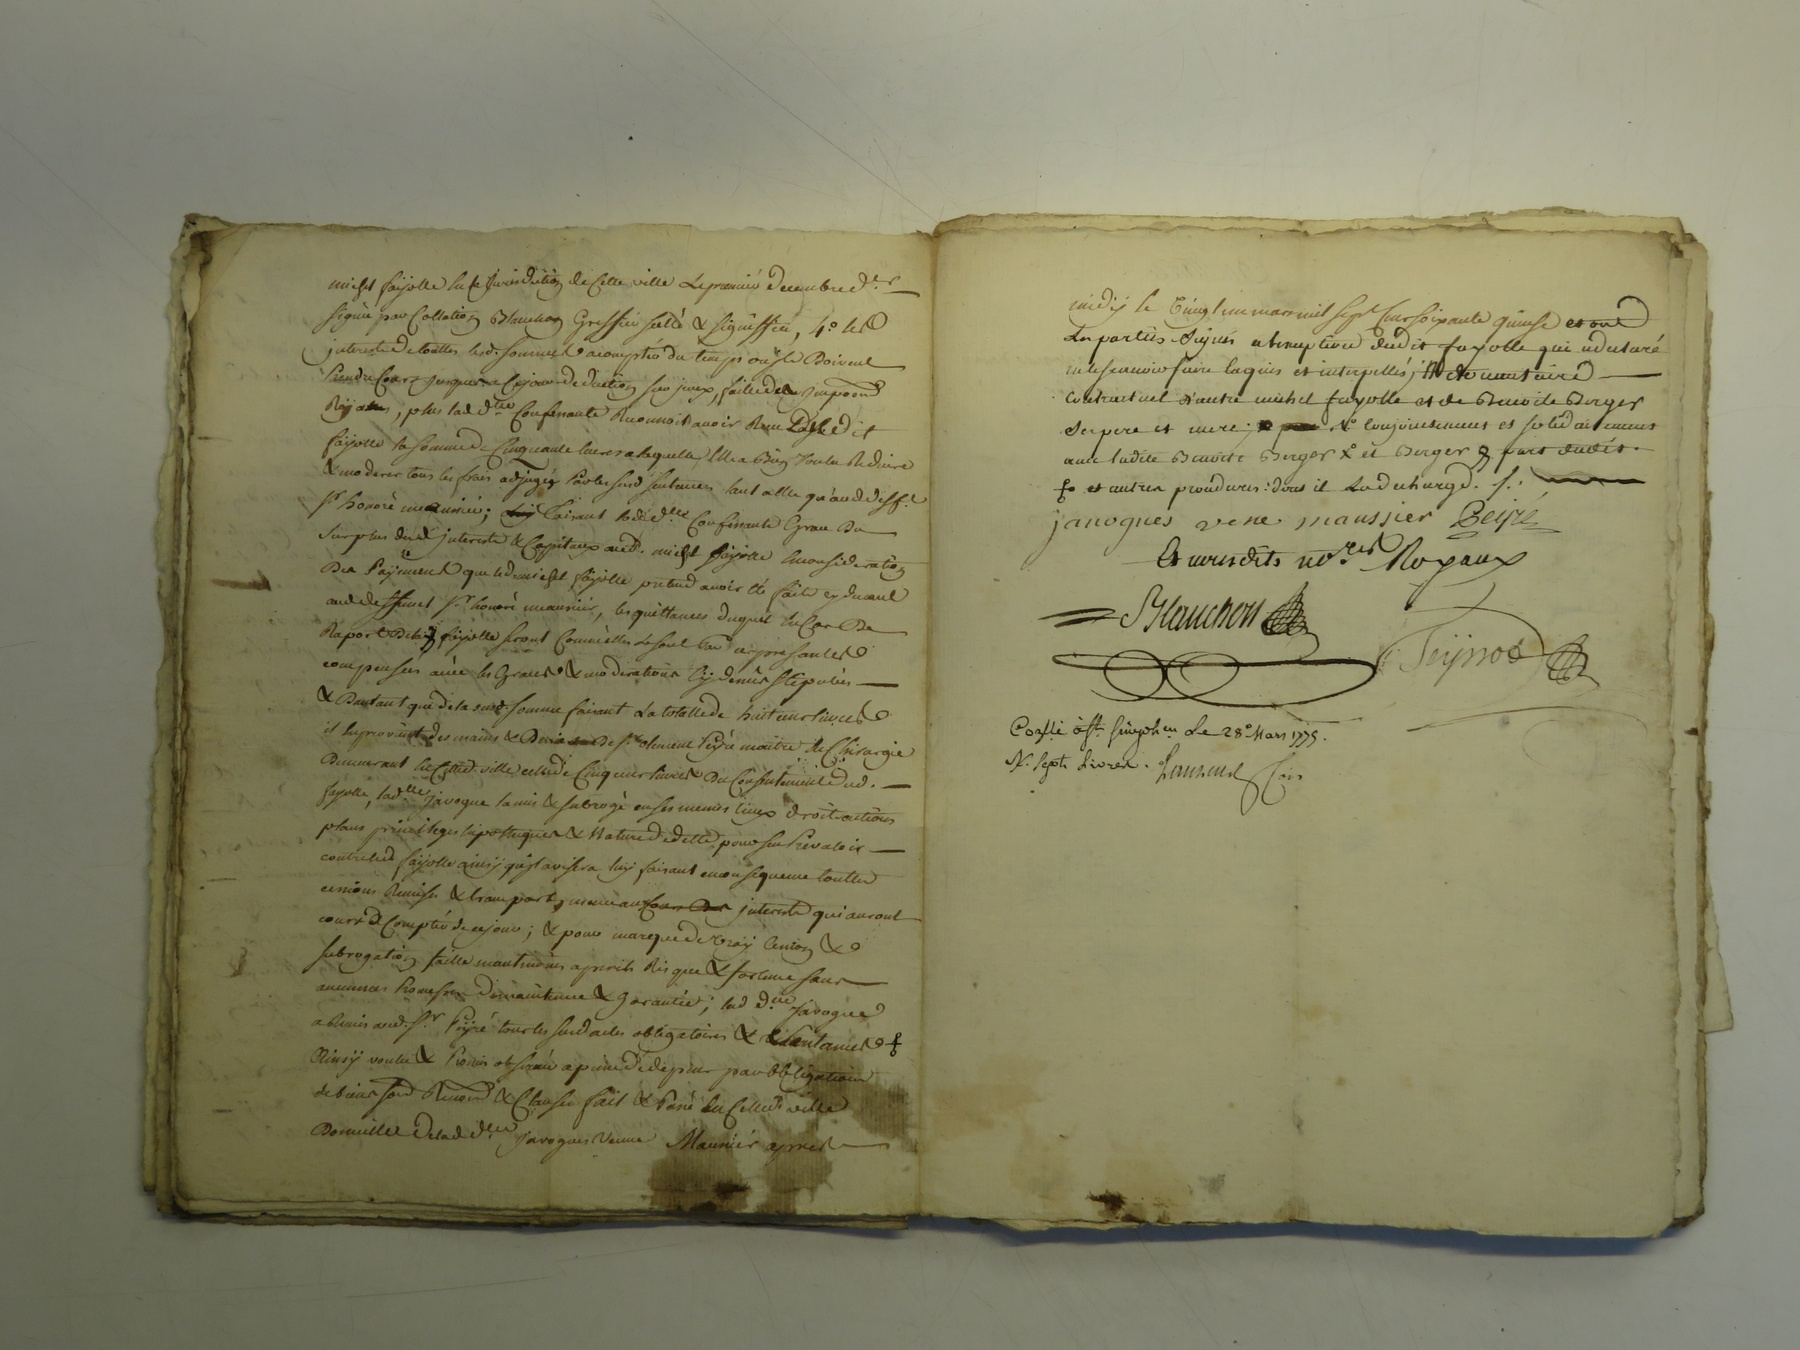 michel fayolle en la Jurisdiction de Cette ville Le premier Decembre der
signée par Collation Blanchon Greffier scellé & signiffiée, 4.o les
interests de touttes lesd. sommes a compter du temps ou ils Doivent
prendre Cours jusques a Cejour deduction sur iceux faitte des impoons
Royalles, plus lad. dlle Confessante Reconnoit avoir Recu dudit
fayolle la somme de Cinquante livres a laquelle Elle a bien voulu Reduire
& moderer tous les frais adjugés par lesusd. sentences tant a elle qu'aud defft
sr honoré meaunier; faisant lad. dlle Confessante Grace Du
surplus desd. interests & Capitaux aud. michel fayolle En consideration
Des Payements que led. michel fayolle pretend avoir été faits cy devant
aud. deffunct sr honoré meaunier, les quittances duquel En Cas De
Raport Dud. fayolle seront Comme elles le sont Par ces presentes
compensées avec les Graces & moderations Cy dessus stipulées
& Dautant que de la susd. somme faisant La totalle de huit cent livres
il en provient des mains & De sr clement Peyré maitre En Chirurgie
Demeurant En Cetted. ville celle de Cinq cent livres Du Consentement dud.
fayolle, lad. dlle javogue la mis & subrogé en ses memes lieux droits actions
plans privileges hipotheques & Nature de dette pour s'en Prevaloir
contre led. fayolle ainsy qu'il avisera luy faisant en consequence touttes
cessions Remises & transports, meme aux interests qui auront
cours a Compter de ce jour; & pour marque de vray Cession &
subrogation faitte neantmoins a ses Risques & fortune sans
aucunes Promesse De maintenue & Garantie; lad. dlle Javogue
a Remis aud. sr Peyré tous les susd. actes obligatoires & sentences
Ainsy voulu & Promis observer a peine de depens par obligation
de biens soub. Renon. & Clauses fait & Passé En Cetted. ville
Domicille delad. dlle javogues veuve Maunier apres
midy le vingt un mars mil sept cent soixante quinse et ont
Les parties signés a l'exception dudit fayolle qui a declaré
ne le scavoir faire Enquis et interpellés;
Contractuel d'autre michel fayolle et de Benoite Berger
ses pere et mere; conjointement et solidairement
avec ladite Benoite Berger
et autres procedures dont il La decharge.
javogues veve maussier Peyré
Et nousdits nores Royaux
Blanchon
Teyssot
Conlé à St. Le 28e. Mars 1775.
R. sept Livres.